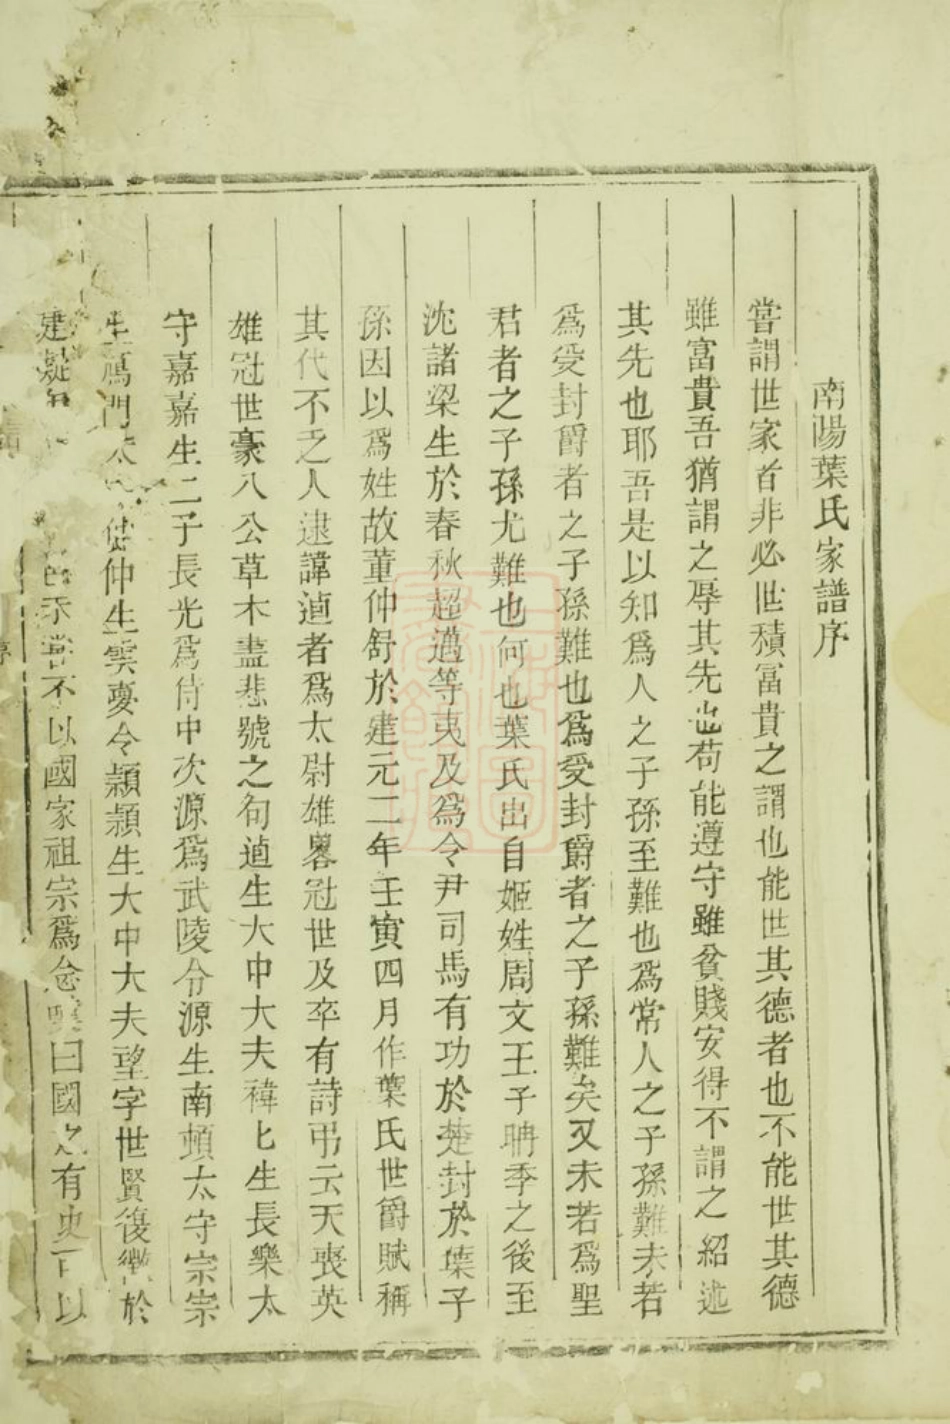 南陽葉氏家譜序
嘗謂世家者非必世積富貴之謂也能世其德者也不能世其德
雖富貴吾猶謂之辱其先也苟能遵守雖貧賤安得不謂之紹述
其先也耶吾是以知爲人之子孫至難也爲常人之子孫難未若
爲受封爵者之子孫難也爲受封爵者之子孫難矣又未若爲聖
君者之子孫尤難也何也葉氏出自姬姓周文王子聃季之後至
沈諸梁生於春秋超邁等夷及爲令尹司馬有功於楚封於葉子
孫因以爲姓故董仲舒於建元二年壬寅四月作葉氏世爵賦稱
其代不乏人逮諱逌者爲太尉雄畧冠世及卒有詩弔云天喪英
雄冠世豪八公草木盡悲號之句逌生大中大夫禕七生長樂太
守嘉嘉生二子長光爲侍中次源爲武陵令源生南頓太守宗宗
生鴈門太仲生雲夢令頴頴生大中大夫望字世賢復徵於
建不以國家祖宗爲念曰國之有史可以